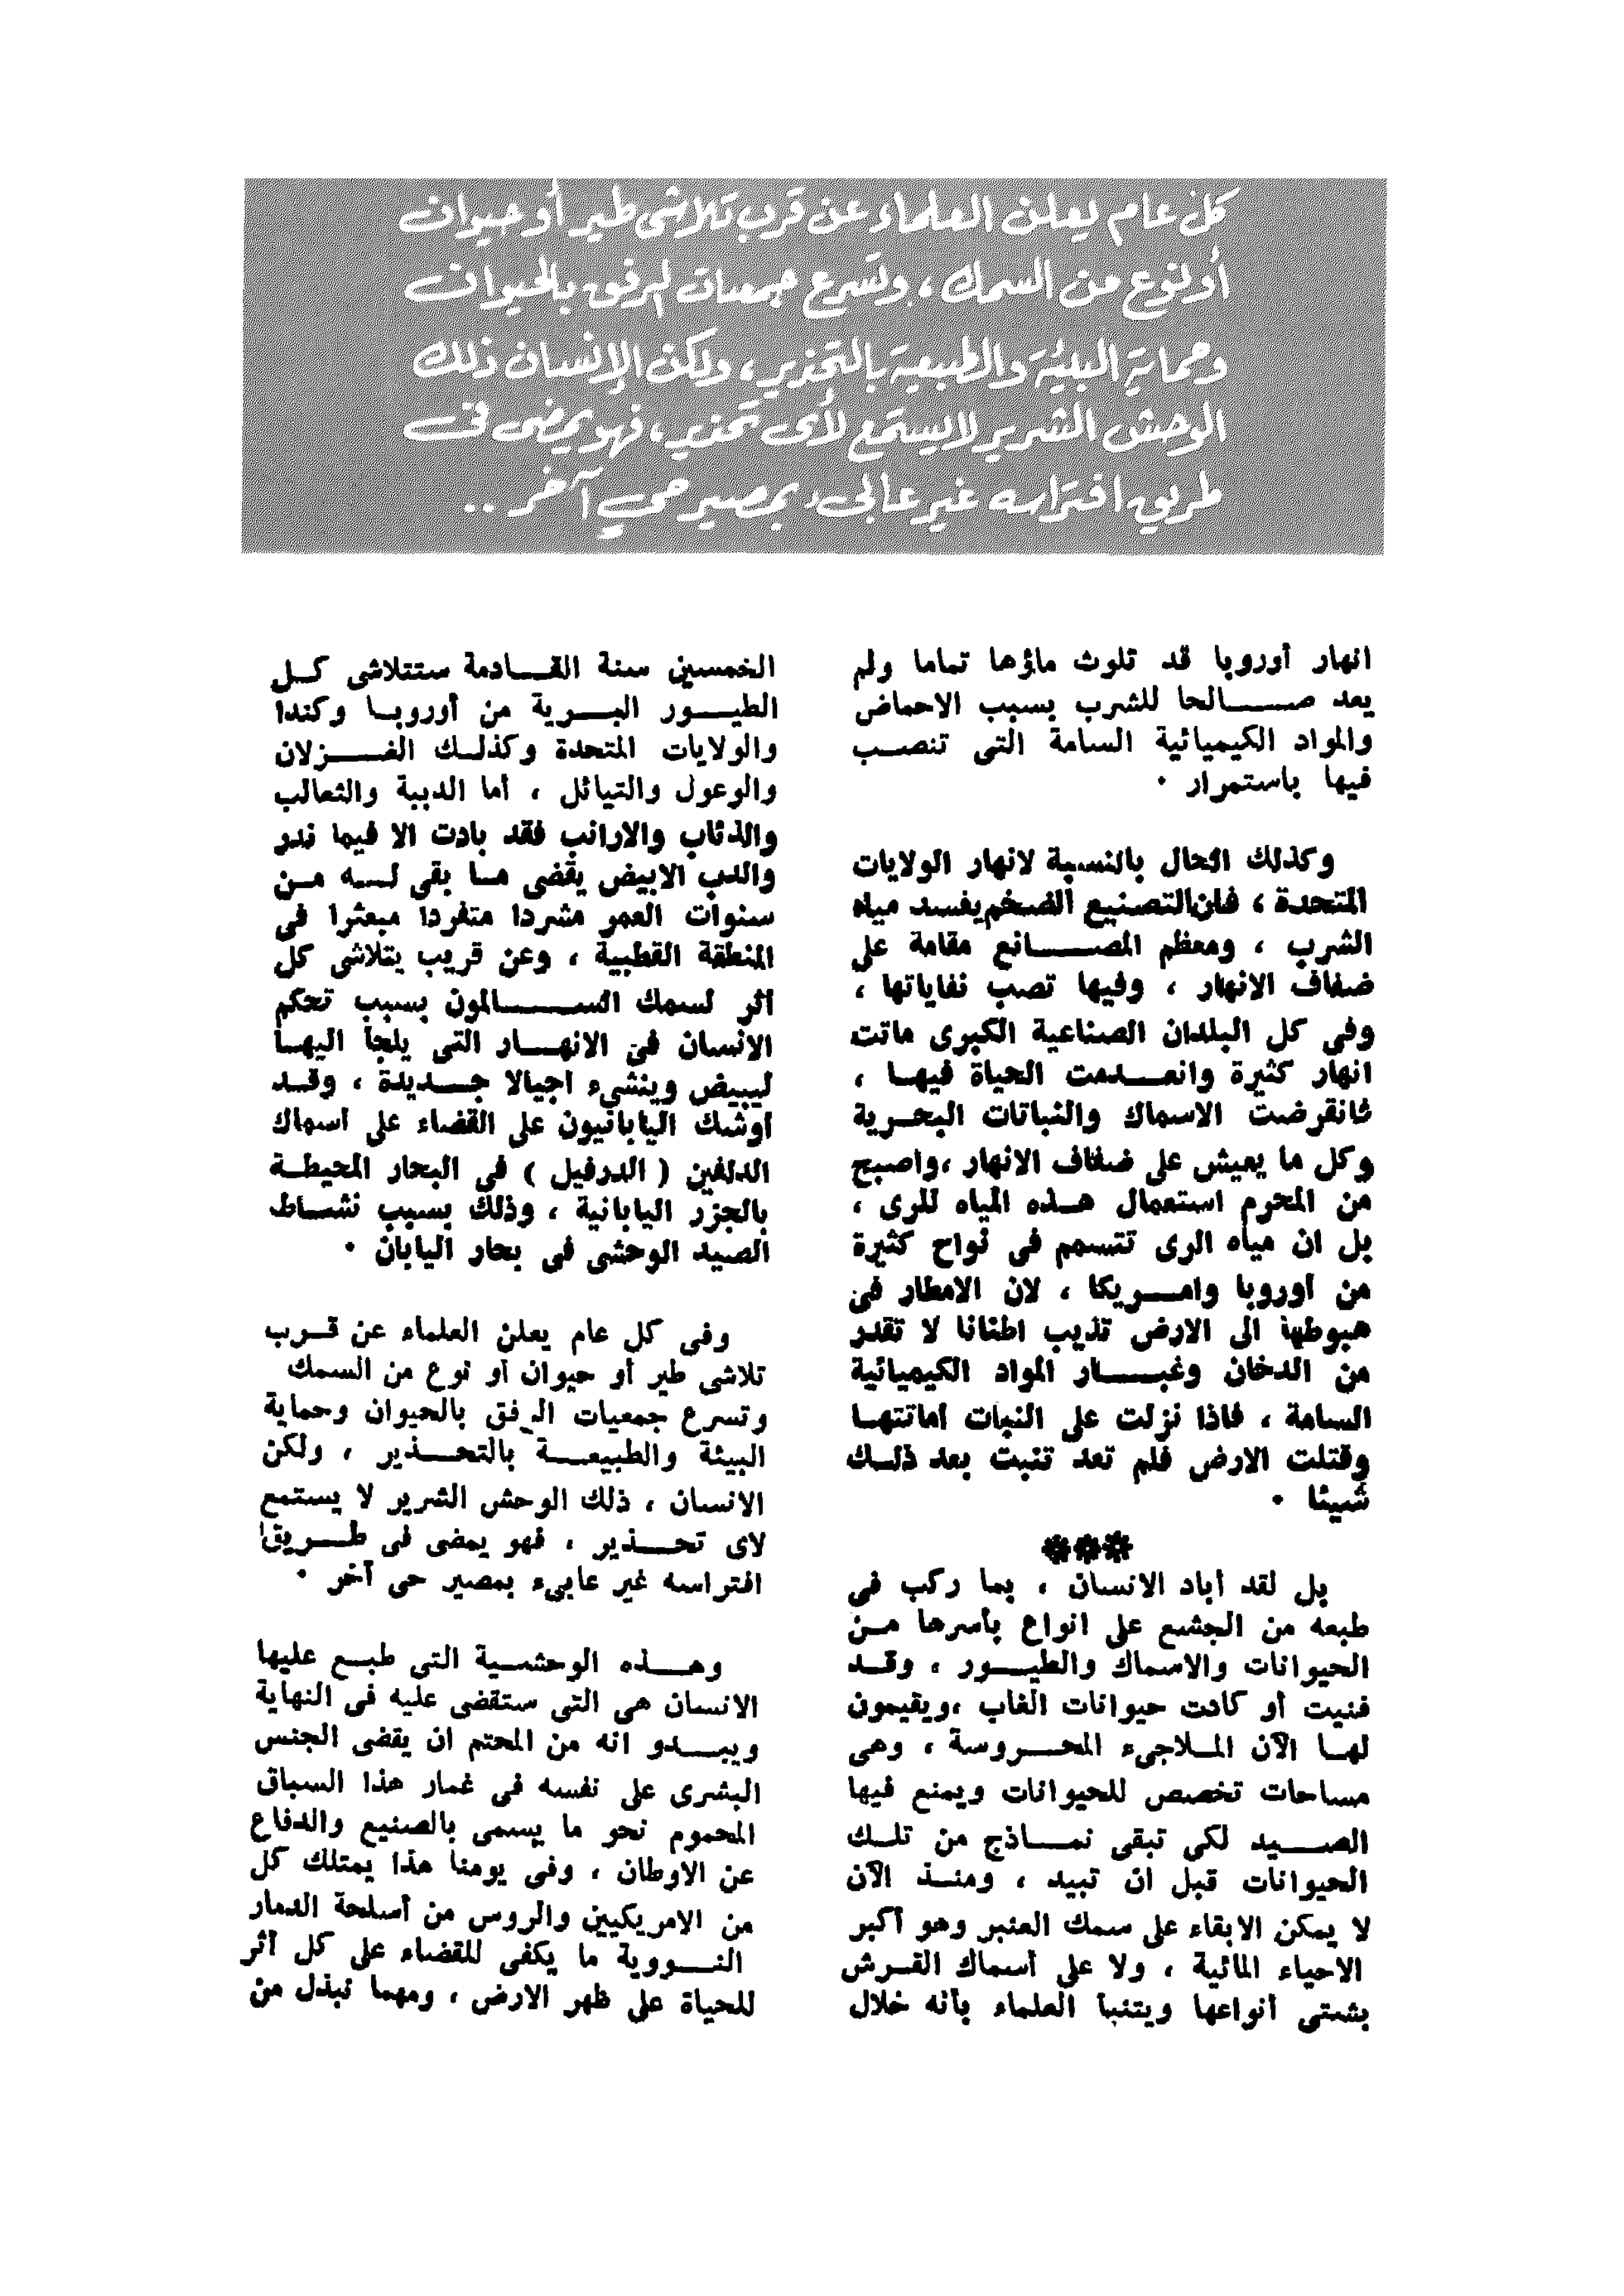 كل عام يعلن العلماء عن قرب تلاشى طير أو حيوان
أو نوع من السمك ، وتسرع جمعيات الرفق بالحيوان
وحماية البيئة والطبيعة بالتحذير ، ولكن الإنسان ذلك
الوحش الشرير لا يستمع لأى تحذير ، فهو يمضى فى
طريق افتراسه غير عابىء بمصير حي آخر . .
انهار أوروبا قد تلوث ماؤها تماما ولم
يعد صالحا للشرب بسبب الاحماض
والمواد الكيميائية السامة التى تنصب
فيها باستمرار .
وكذلك الحال بالنسبة لانهار الولايات
المتحدة ، فان التصنيع الضخم يفسد مياه
الشرب ، ومعظم المصانع مقامة على
ضفاف الانهار ، وفيها تصب نفاياتها ،
وفى كل البلدان الصناعية الكبرى ماتت
انهار كثيرة وانعدمت الحياة فيها ،
فانقرضت الاسماك والنباتات البحرية
وكل ما يعيش على ضفاف الانهار ، واصبح
من المحرم استعمال هذه المياه للرى ،
بل ان مياه الرى تتسمم فى نواح كثيرة
من اوروبا وامريكا ، لان الامطار فى
هبوطها الى الارض تذيب اطنانا لا تقدر
من الدخان وغبار المواد الكيميائية
السامة ، فاذا نزلت على النبات اماتتها
وقتلت الارض فلم تعد تنبت بعد ذلك
شيئا .
***
بل لقد أباد الانسان ، بما ركب فى
طبعه من الجشع على انواع بأسرها من
الحيوانات والاسماك والطيور ، وقد
فنيت أو كادت حيوانات الغاب ، ويقيمون
لها الآن الملاجىء المحروسة ، وهى
مساحات تخصص للحيوانات ويمنع فيها
الصيد لكى تبقى نماذج من تلك
الحيوانات قبل ان تبيد ، ومنذ الآن
لا يمكن الابقاء على سمك العنبر وهو أكبر
الاحياء المائية ، ولا على أسماك القرش
بشتى أنواعها ويتنبأ العلماء بأنه خلال
الخمسين سنة القادمة ستتلاشى كل
الطيور البرية من أوروبا وكندا
والولايات المتحدة وكذلك الغزلان
والوعول والتياتل ، أما الدببة والثعالب
والذئاب والارانب فقد بادت الا فيما ندر
والدب الابيض يقضى ما بقى له من
سنوات العمر مشردا متفردا مبعثرا فى
المنطقة القطبية ، وعن قريب يتلاشى كل
اثر لسمك السالمون بسبب تحكم
الانسان فى الانهار التى يلجأ اليها
ليبيض وينشىء اجيالا جديدة ، وقد
اوشك اليابانيون على القضاء على اسماك
الدلفين ( الدرفيل ) فى البحار المحيطة
بالجزر اليابانية ، وذلك بسبب نشاط
الصيد الوحشى فى بحار اليابان .
وفى كل عام يعلن العلماء عن قرب
تلاشى طير أو حيوان أو نوع من السمك
وتسرع جمعيات الرفق بالحيوان وحماية
البيئة والطبيعة بالتحذير ، ولكن
الانسان ، ذلك الوحش الشرير لا يستمع
لاى تحذير ، فهو يمضى فى طريق
افتراسه غير عابىء بمصير حى آخر .
وهذه الوحشية التى طبع عليها
الانسان هى التى ستقضى عليه فى النهاية
ويبدو انه من المحتم ان يقضى الجنس
البشرى على نفسه فى غمار هذا السباق
المحموم نحو ما يسمى بالصنيع والدفاع
عن الاوطان ، وفى يومنا هذا يمتلك كل
من الامريكيين والروس من أسلحة الدمار
النووية ما يكفى للقضاء على كل أثر
للحياة على ظهر الارض ، ومهما نبذل من